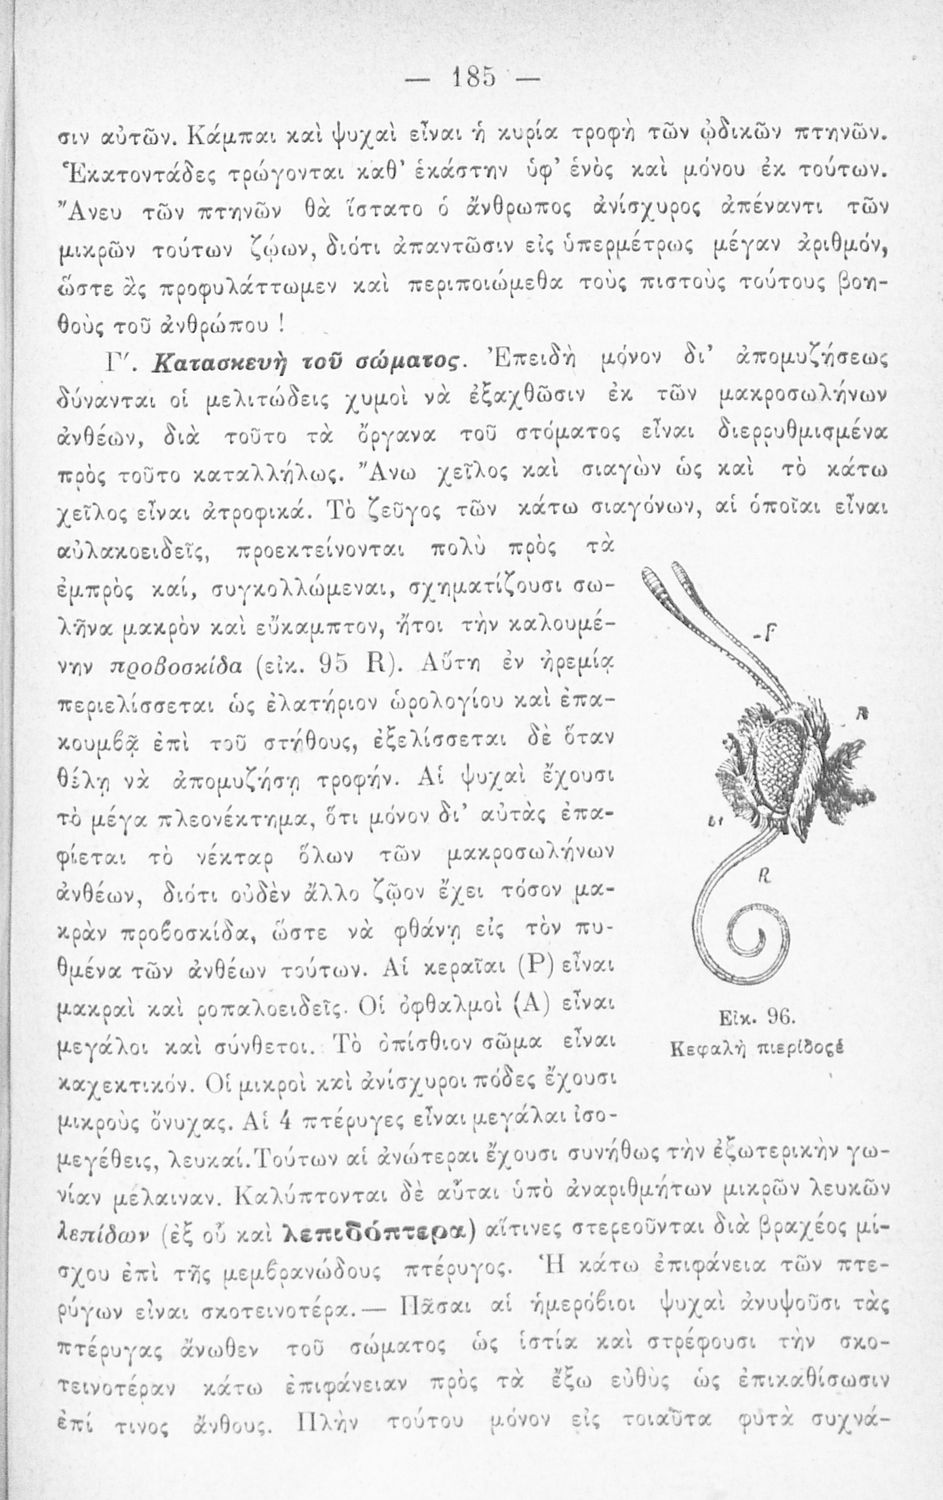 — 185 —
σιν αὐτῶν. Κάμπαι καὶ ψυχαὶ εἶναι ἡ κυρία τροφὴ τῶν ᾠδικῶν πτηνῶν.
Ἑκατοντάδες τρώγονται καθ' ἑκάστην ὑφ' ἑνὸς καὶ μόνου ἐκ τούτων.
Ἄνευ τῶν πτηνῶν θὰ ἵστατο ὁ ἄνθρωπος ἀνίσχυρος ἀπέναντι τῶν
μικρῶν τούτων ζῴων, διότι ἀπαντῶσιν εἰς ὑπερμέτρως μέγαν ἀριθμόν,
ὥστε ἂς προφυλάττωμεν καὶ περιποιώμεθα τοὺς πιστοὺς τούτους βοη-
θοὺς τοῦ ἀνθρώπου !
Γ'. Κατασκευὴ τοῦ σώματος. Ἐπειδὴ μόνον δι' ἀπομυζήσεως
δύνανται οἱ μελιτώδεις χυμοὶ νὰ ἐξαχθῶσιν ἐκ τῶν μακροσωλήνων
ἀνθέων, διὰ τοῦτο τὰ ὄργανα τοῦ στόματος εἶναι διερρυθμισμένα
πρὸς τοῦτο καταλλήλως. Ἄνω χεῖλος καὶ σιαγὼν ὡς καὶ τὸ κάτω
χεῖλος εἶναι ἀτροφικά. Τὸ ζεῦγος τῶν κάτω σιαγόνων, αἱ ὁποῖαι εἶναι
αὐλακοειδεῖς, προεκτείνονται πολὺ πρὸς τὰ
ἐμπρὸς καί, συγκολλώμεναι, σχηματίζουσι σω-
λῆνα μακρὸν καὶ εὔκαμπτον, ἤτοι τὴν καλουμέ-
νην προβοσκίδα (εἰκ. 95 R). Αὕτη ἐν ἠρεμίᾳ
περιελίσσεται ὡς ἐλατήριον ὡρολογίου καὶ ἐπα-
κουμβᾷ ἐπὶ τοῦ στήθους, ἐξελίσσεται δὲ ὅταν
θέλῃ νὰ ἀπομυζήσῃ τροφήν. Αἱ ψυχαὶ ἔχουσι
τὸ μέγα πλεονέκτημα, ὅτι μόνον δι' αὐτὰς ἐπα-
φίεται τὸ νέκταρ ὅλων τῶν μακροσωλήνων
ἀνθέων, διότι οὐδὲν ἄλλο ζῷον ἔχει τόσον μα-
κρὰν προβοσκίδα, ὥστε νὰ φθάνῃ εἰς τὸν πυ-
θμένα τῶν ἀνθέων τούτων. Αἱ κεραῖαι (Ρ) εἶναι
μακραὶ καὶ ροπαλοειδεῖς. Οἱ ὀφθαλμοὶ (Α) εἶναι
μεγάλοι καὶ σύνθετοι. Τὸ ὀπίσθιον σῶμα εἶναι
καχεκτικόν. Οἱ μικροὶ καὶ ἀνίσχυροι πόδες ἔχουσι
μικροὺς ὄνυχας. Αἱ 4 πτέρυγες εἶναι μεγάλαι ἰσο-
μεγέθεις, λευκαί. Τούτων αἱ ἀνώτεραι ἔχουσι συνήθως τὴν ἐξωτερικὴν γω-
νίαν μέλαιναν. Καλύπτονται δὲ αὗται ὑπὸ ἀναριθμήτων μικρῶν λευκῶν
λεπίδων (ἐξ οὗ καὶ λεπιδόπτερα) αἵτινες στερεοῦνται διὰ βραχέος μί-
σχου ἐπὶ τῆς μεμβρανώδους πτέρυγος. Ἡ κάτω ἐπιφάνεια τῶν πτε-
ρύγων εἶναι σκοτεινοτέρα.— Πᾶσαι αἱ ἡμερόβιοι ψυχαὶ ἀνυψοῦσι τὰς
πτέρυγας ἄνωθεν τοῦ σώματος ὡς ἱστία καὶ στρέφουσι τὴν σκο-
τεινοτέραν κάτω ἐπιφάνειαν πρὸς τὰ ἔξω εὐθὺς ὡς ἐπικαθίσωσιν
ἐπί τινος ἄνθους. Πλὴν τούτου μόνον εἰς τοιαῦτα φυτὰ συχνά-
F
A
R
Εἰκ. 96.
Κεφαλὴ πιερίδος